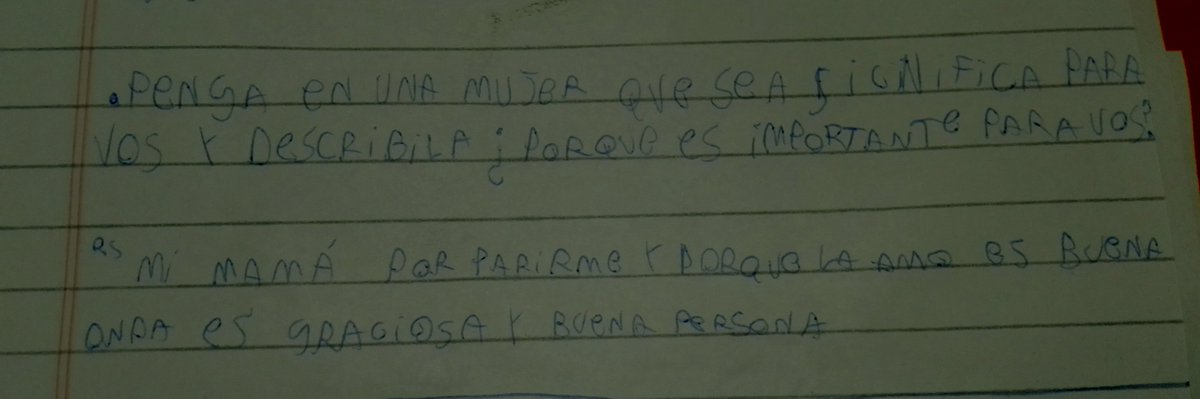 .PENGA EN UNA MUJER QUE SEA SIGNIFICA PARA
VOS Y DESCRIBILA ¿PORQUE ES IMPORTANTE PARA VOS?
RS MI MAMÁ POR PARIRME Y PORQUE LA AMO ES BUENA
ONDA ES GRACIOSA Y BUENA PERSONA